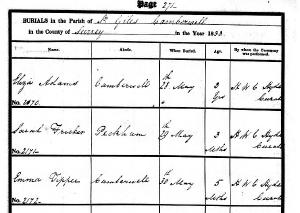 Page 271
BURIALS in the Parish of St Giles Camberwell
in the County of Surrey in the Year 1853
Name. Abode. When Buried. Age. By whom the Ceremony was performed.
Eliza Adams Camberwell 28th May 2 Yrs H W C Hyde Curate
No. 2170.
Sarah Fricker Peckham 29th May 3 Mths H W C Hyde Curate
No. 2171.
Emma Tipper Camberwell 30th May 5 Mths H W C Hyde Curate
No. 2172.